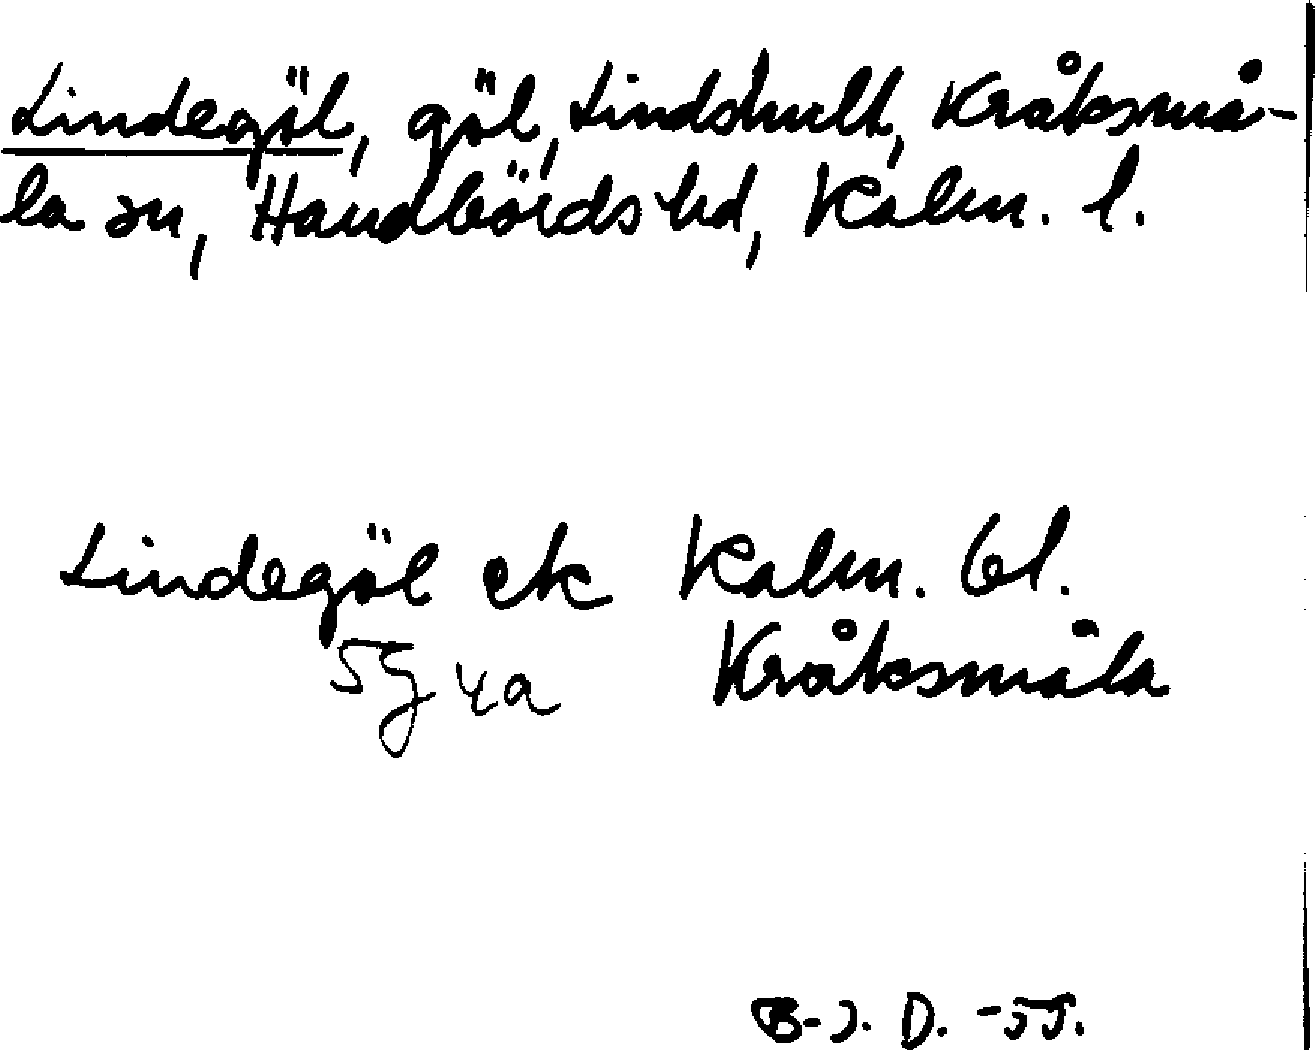 Lindegöl, göl, Lindshult, Kråksmå-
la sn, Handbörds hd, Kalm. l.
Lindegöl ek Kalm. bl.
5g 4a Kråksmåla
B-J. D. -55.